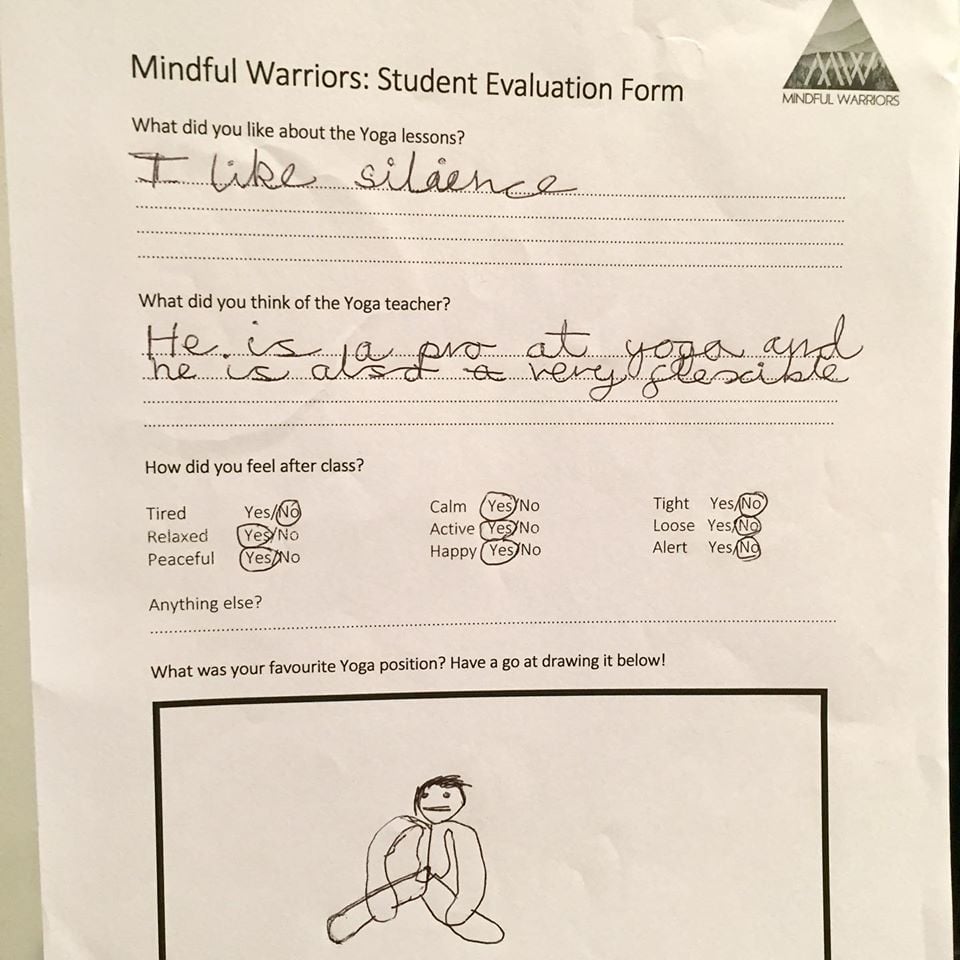 Mindful Warriors: Student Evaluation Form
MW
MINDFUL WARRIORS
What did you like about the Yoga lessons?
I like silaence
What did you think of the Yoga teacher?
He is a pro at yoga and
he is also a very flexible
How did you feel after class?
Tired Yes/No Calm Yes/No Tight Yes/No
Relaxed Yes/No Active Yes/No Loose Yes/No
Peaceful Yes/No Happy Yes/No Alert Yes/No
Anything else?
What was your favourite Yoga position? Have a go at drawing it below!